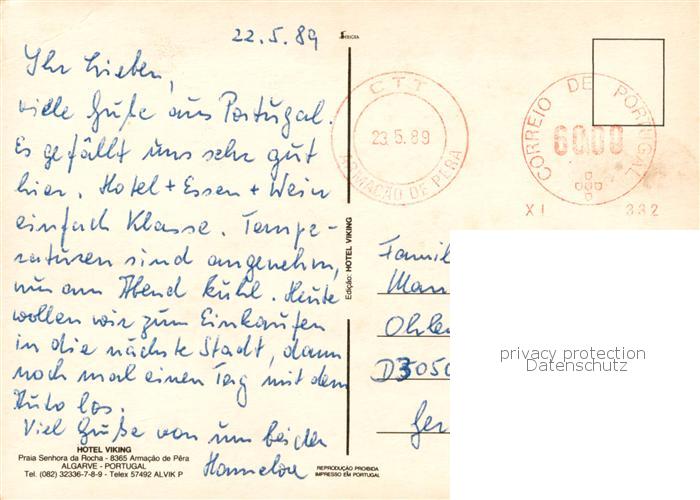 22.5.89
Ihr Lieben,
viele Grüße aus Portugal.
Es gefällt uns sehr gut
hier. Hotel + Essen + Wein
einfach Klasse. Tempe-
raturen sind angenehm,
nur am Abend kühl. Heute
wollen wir zum Einkaufen
in die nächste Stadt, dann
noch mal einen Tag mit dem
Auto los.
Viel Grüße von uns beiden
Hannelore
HOTEL VIKING
Praia Senhora da Rocha - 8365 Armação de Pêra
ALGARVE - PORTUGAL
Tel. (082) 32336-7-8-9 - Telex 57492 ALVIK P
Edição: HOTEL VIKING
REPRODUÇÃO PROIBIDA
IMPRESSO EM PORTUGAL
CTT
23.5.89
ARMAÇÃO DE PERA
CORREIO DE PORTUGAL
60.00
XI 332
Famil
Man
Ohle
D3050
Ger
privacy protection
Datenschutz